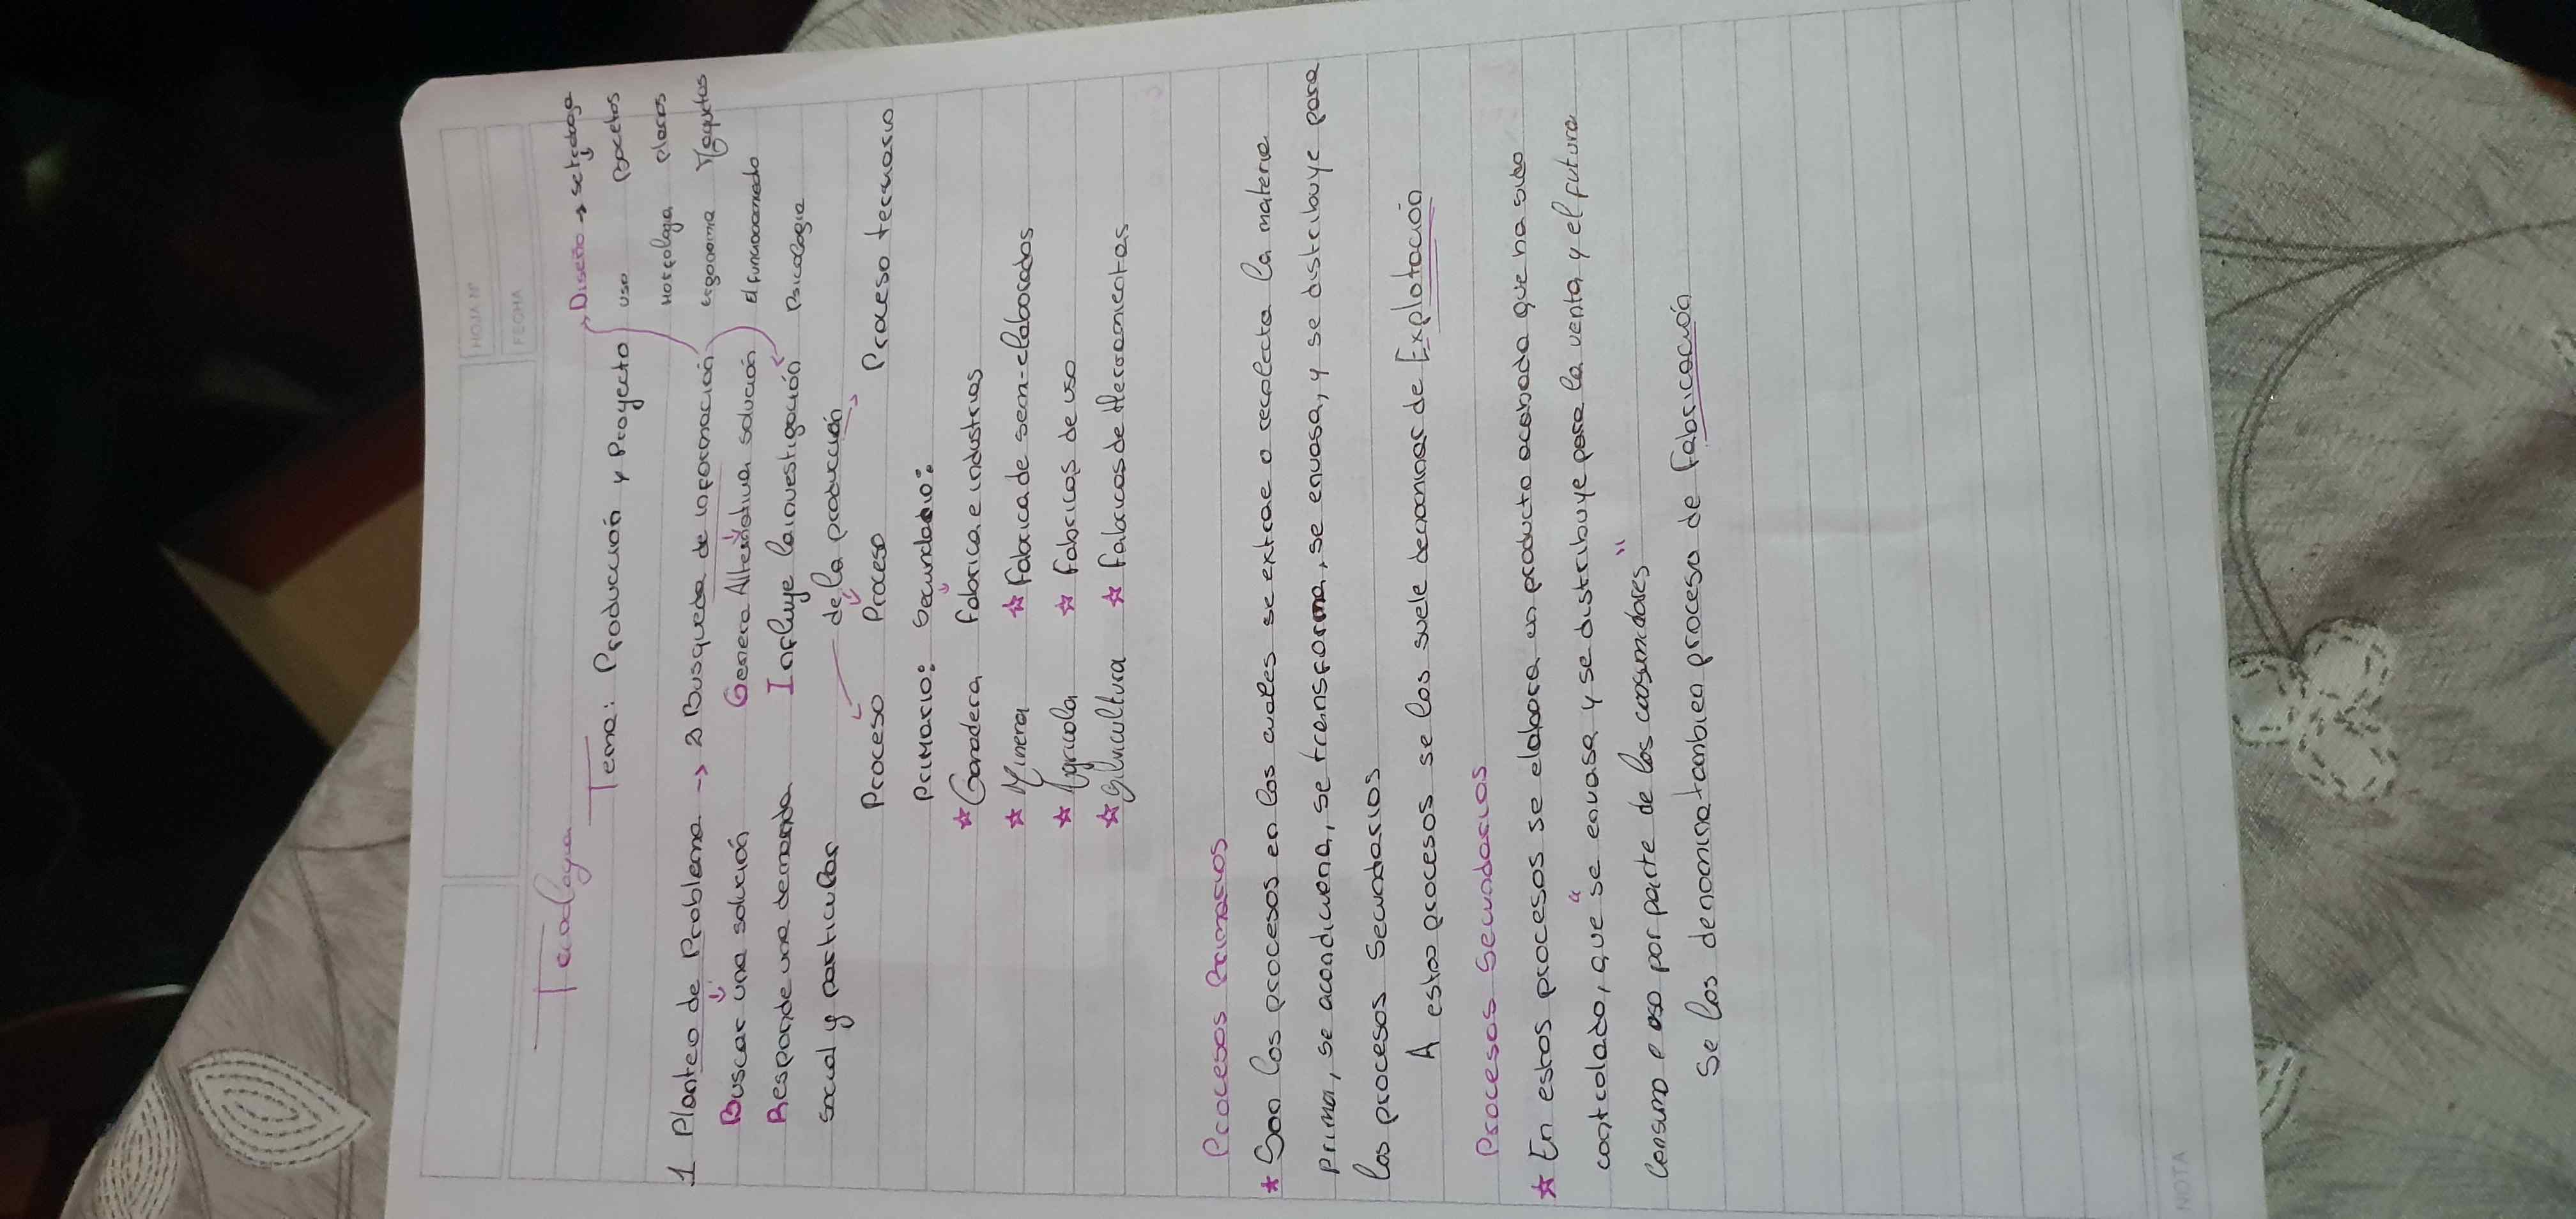 HOJA Nº
FECHA
Tecnologia
Tema: Producción y Proyecto
Diseño → se trabaja
uso Bocetos
Morfologia planos
ergonomia Maquetas
el funcionamiento
Psicologia
1 Planteo de Problema → 2 Busqueda de información
Buscar una solución Genera Alternativa solución
Responde una demanda Influye la investigación
social y particular de la producción
Proceso Proceso Proceso terciario
primario: Secundario:
☆ Ganadera fabrica e industrias
☆ Minera ☆ Fabrica de sem-elaborados
☆ Agricola ☆ Fabricas de uso
☆ Silvicultura ☆ Fabricas de Herramientas
Procesos Primarios
★ Son los procesos en los cuales se extrae o recolecta la materia
prima, se acondiciona, se transforma, se envasa, y se distribuye para
los procesos Secundarios
A estos procesos se los suele denominar de Explotación
Procesos Secundarios
☆ En estos procesos se elabora un producto acabado que ha sido
controlado, que "se envasa y se distribuye para la venta y el futura
Consumo o uso por parte de los consumidores"
Se los denomina tambien proceso de Fabricación
NOTA